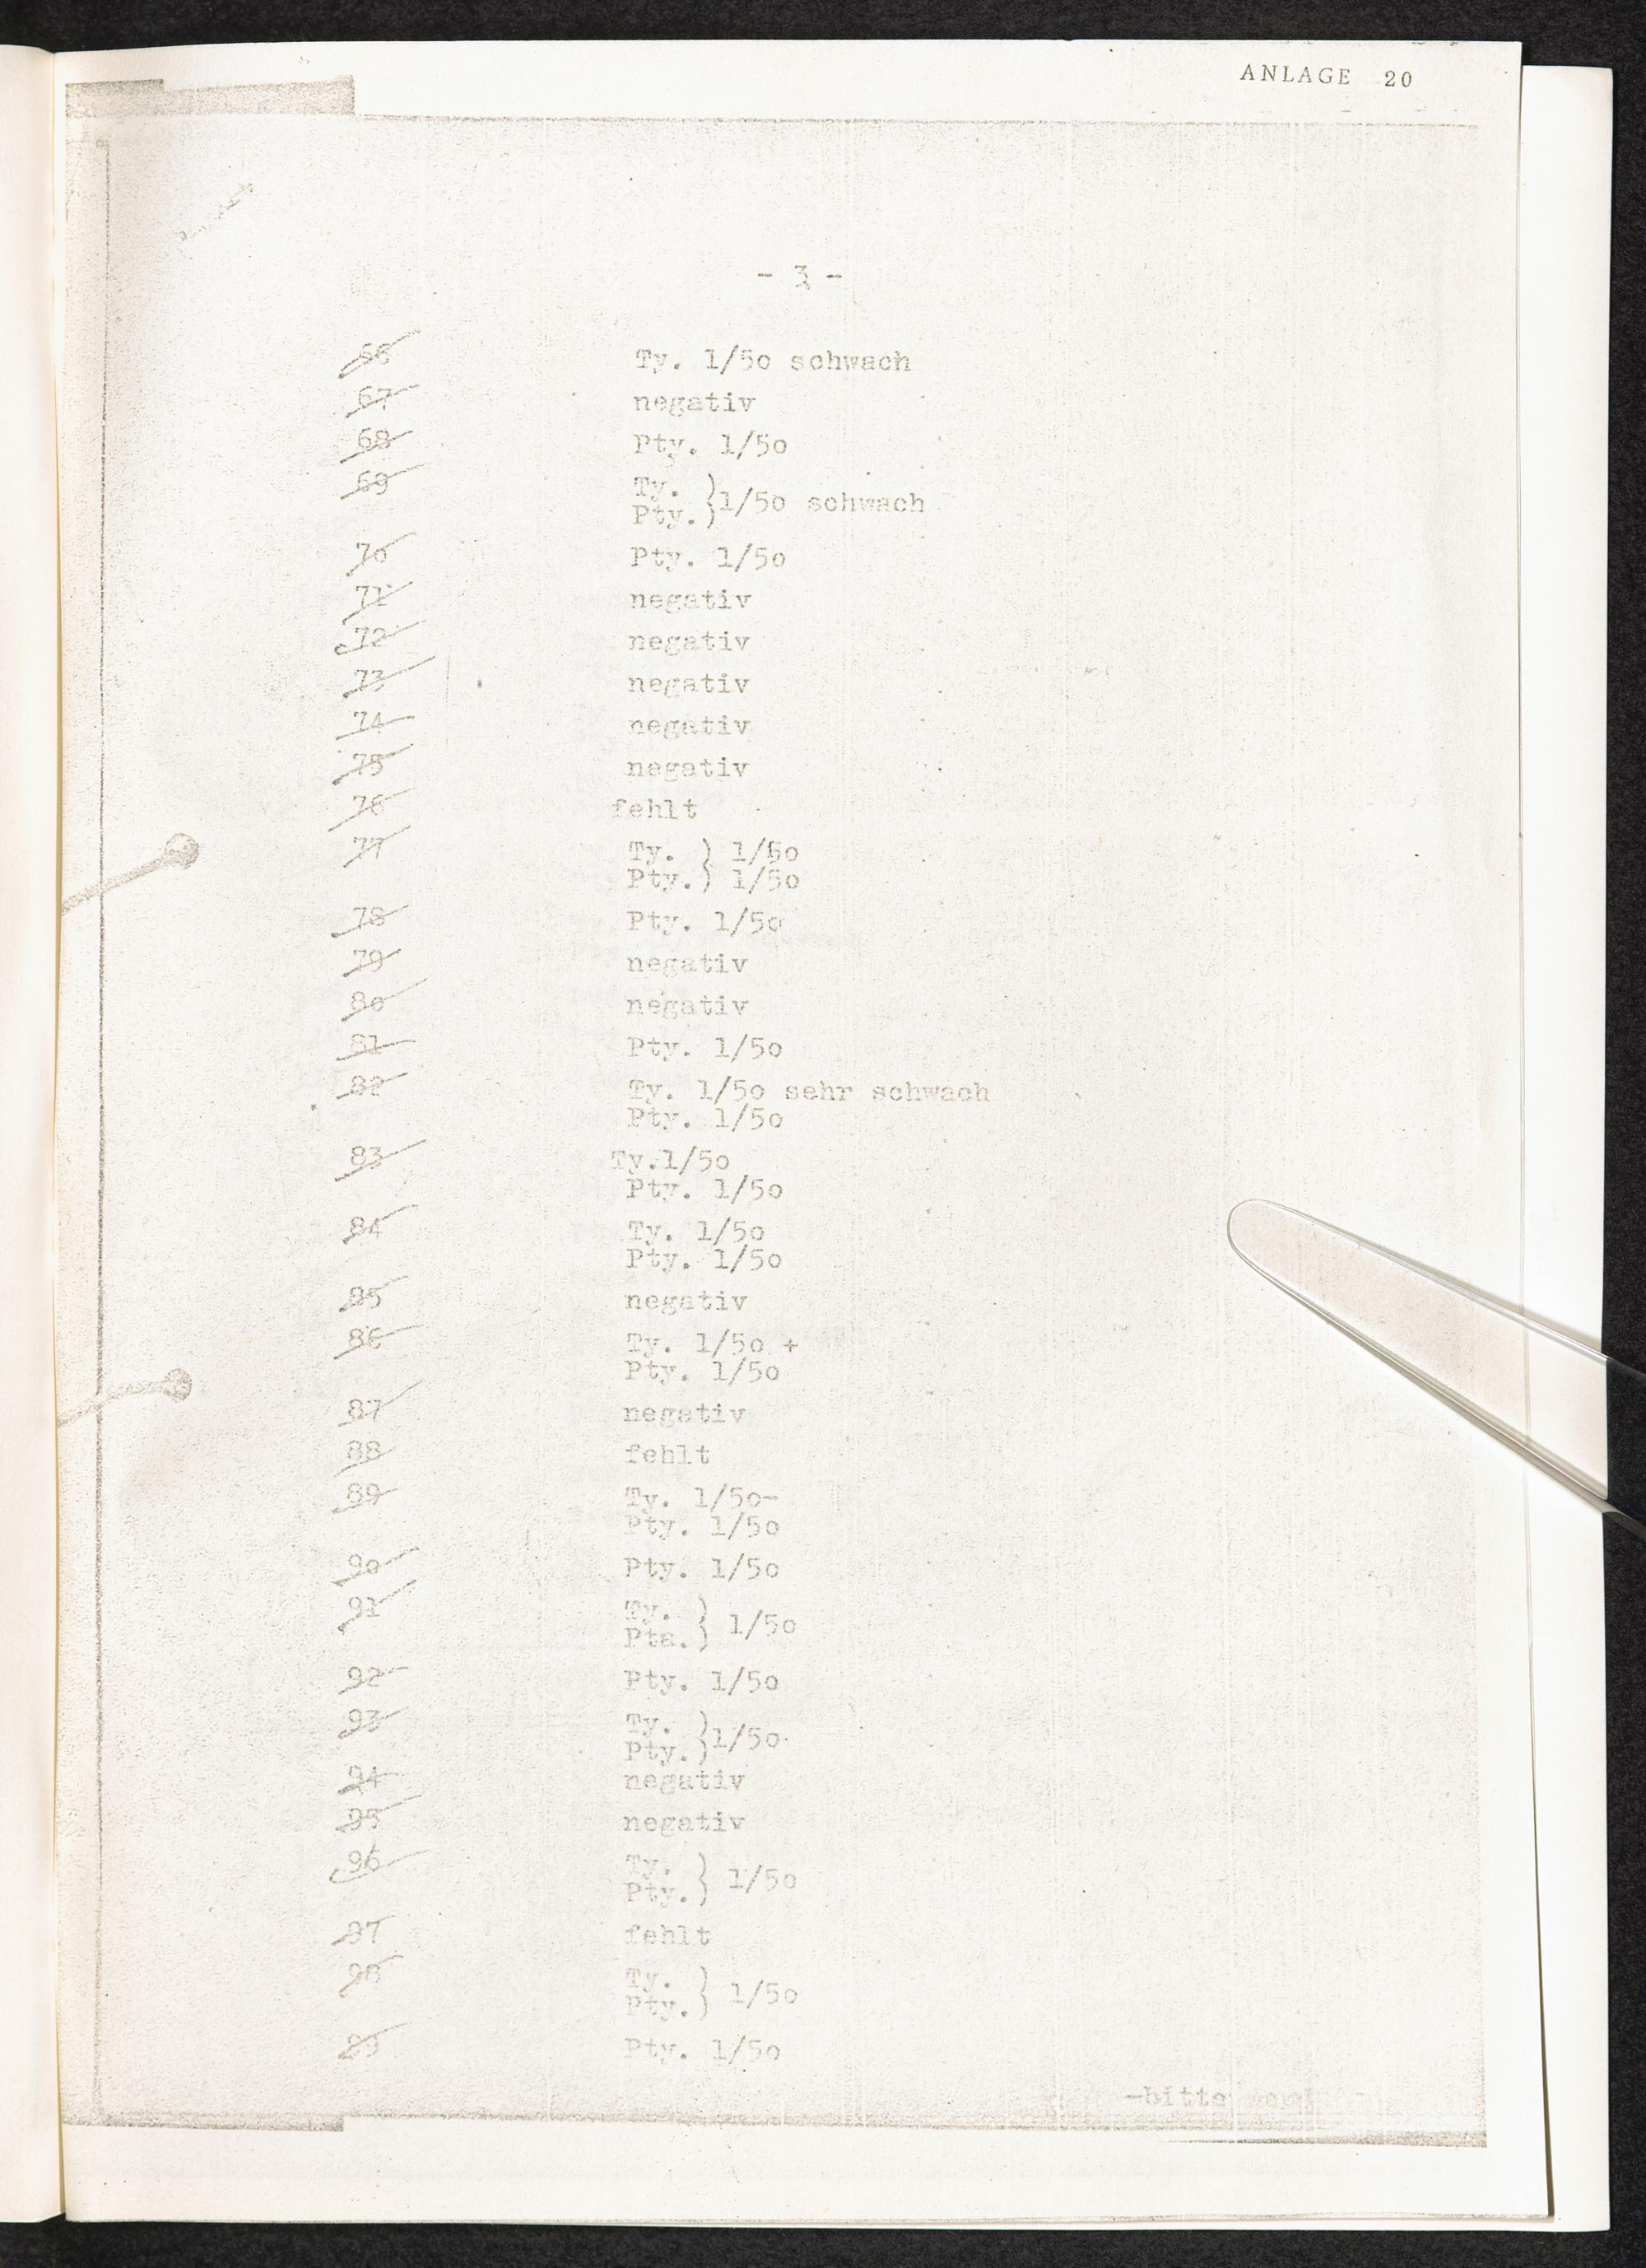 ANLAGE 20
- 3 -
66 Ty. 1/5o schwach
67 negativ
68 Pty. 1/5o
69 Ty. )
Pty. ) 1/5o schwach
7o Pty. 1/5o
71 negativ
72 negativ
73 negativ
74 negativ
75 negativ
76 fehlt
77 Ty. ) 1/5o
Pty. ) 1/5o
78 Pty. 1/5o
79 negativ
8o negativ
81 Pty. 1/5o
82 Ty. 1/5o sehr schwach
Pty. 1/5o
83 Ty.1/5o
Pty. 1/5o
84 Ty. 1/5o
Pty. 1/5o
85 negativ
86 Ty. 1/5o +
Pty. 1/5o
87 negativ
88 fehlt
89 Ty. 1/5o-
Pty. 1/5o
9o Pty. 1/5o
91 Ty. )
Pta. ) 1/5o
92 Pty. 1/5o
93 Ty. )
Pty. ) 1/5o
94 negativ
95 negativ
96 Ty. )
Pty. ) 1/5o
97 fehlt
98 Ty. )
Pty. ) 1/5o
99 Pty. 1/5o
-bitte